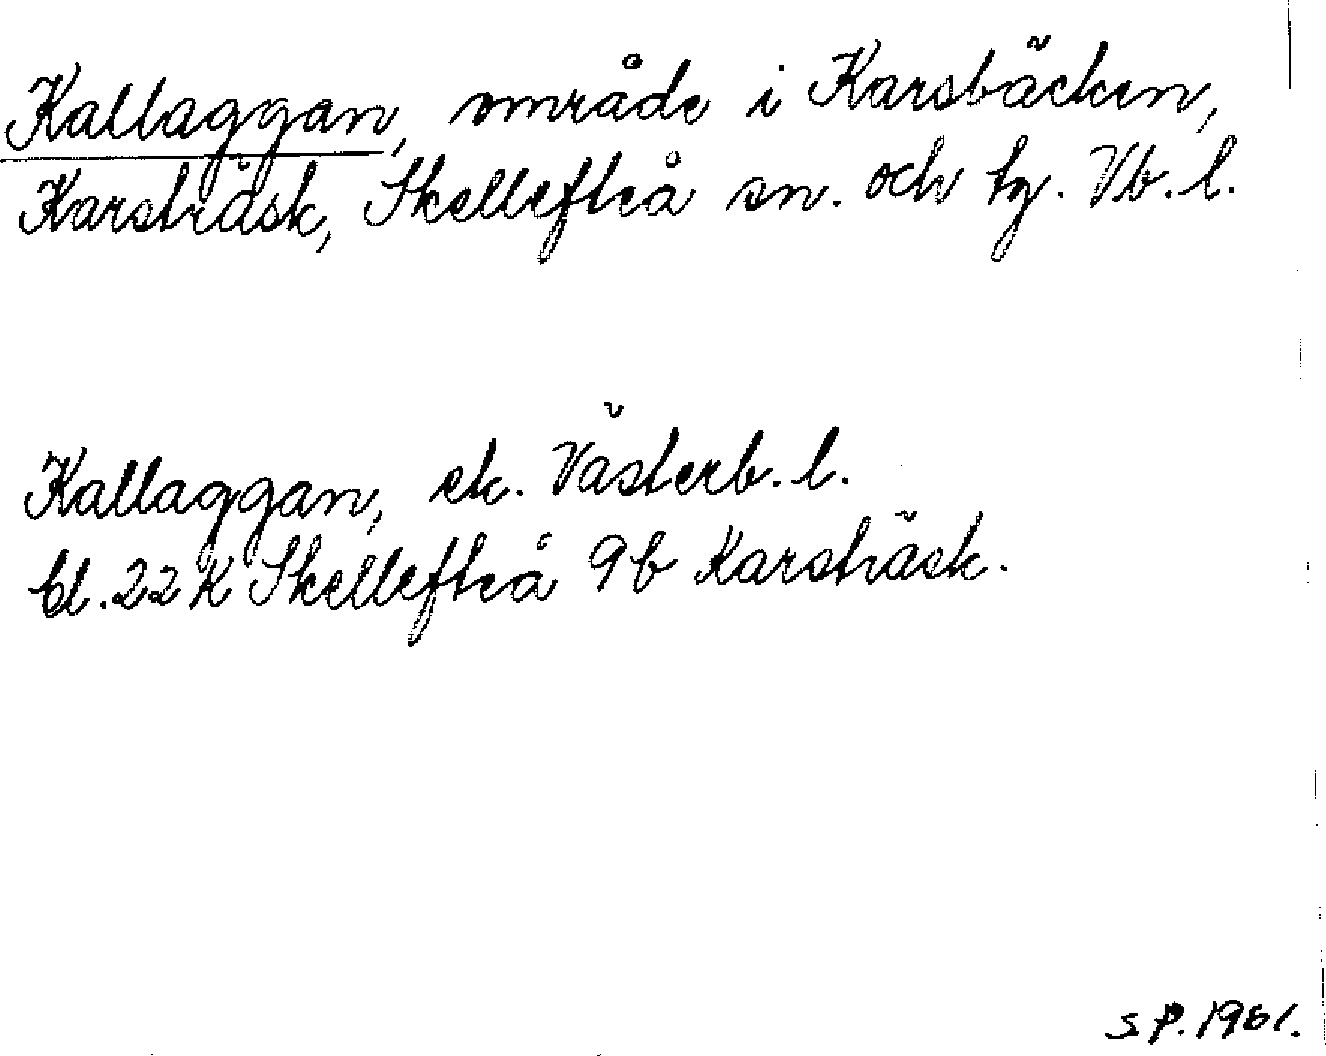 Kallaggan, område i Karsbäcken,
Karsträsk, Skellefteå sn. och tg. Vb. l.
Kallaggan, ek. Västerb. l.
bl. 22 K Skellefteå 9b Karsträsk.
S P. 1961.